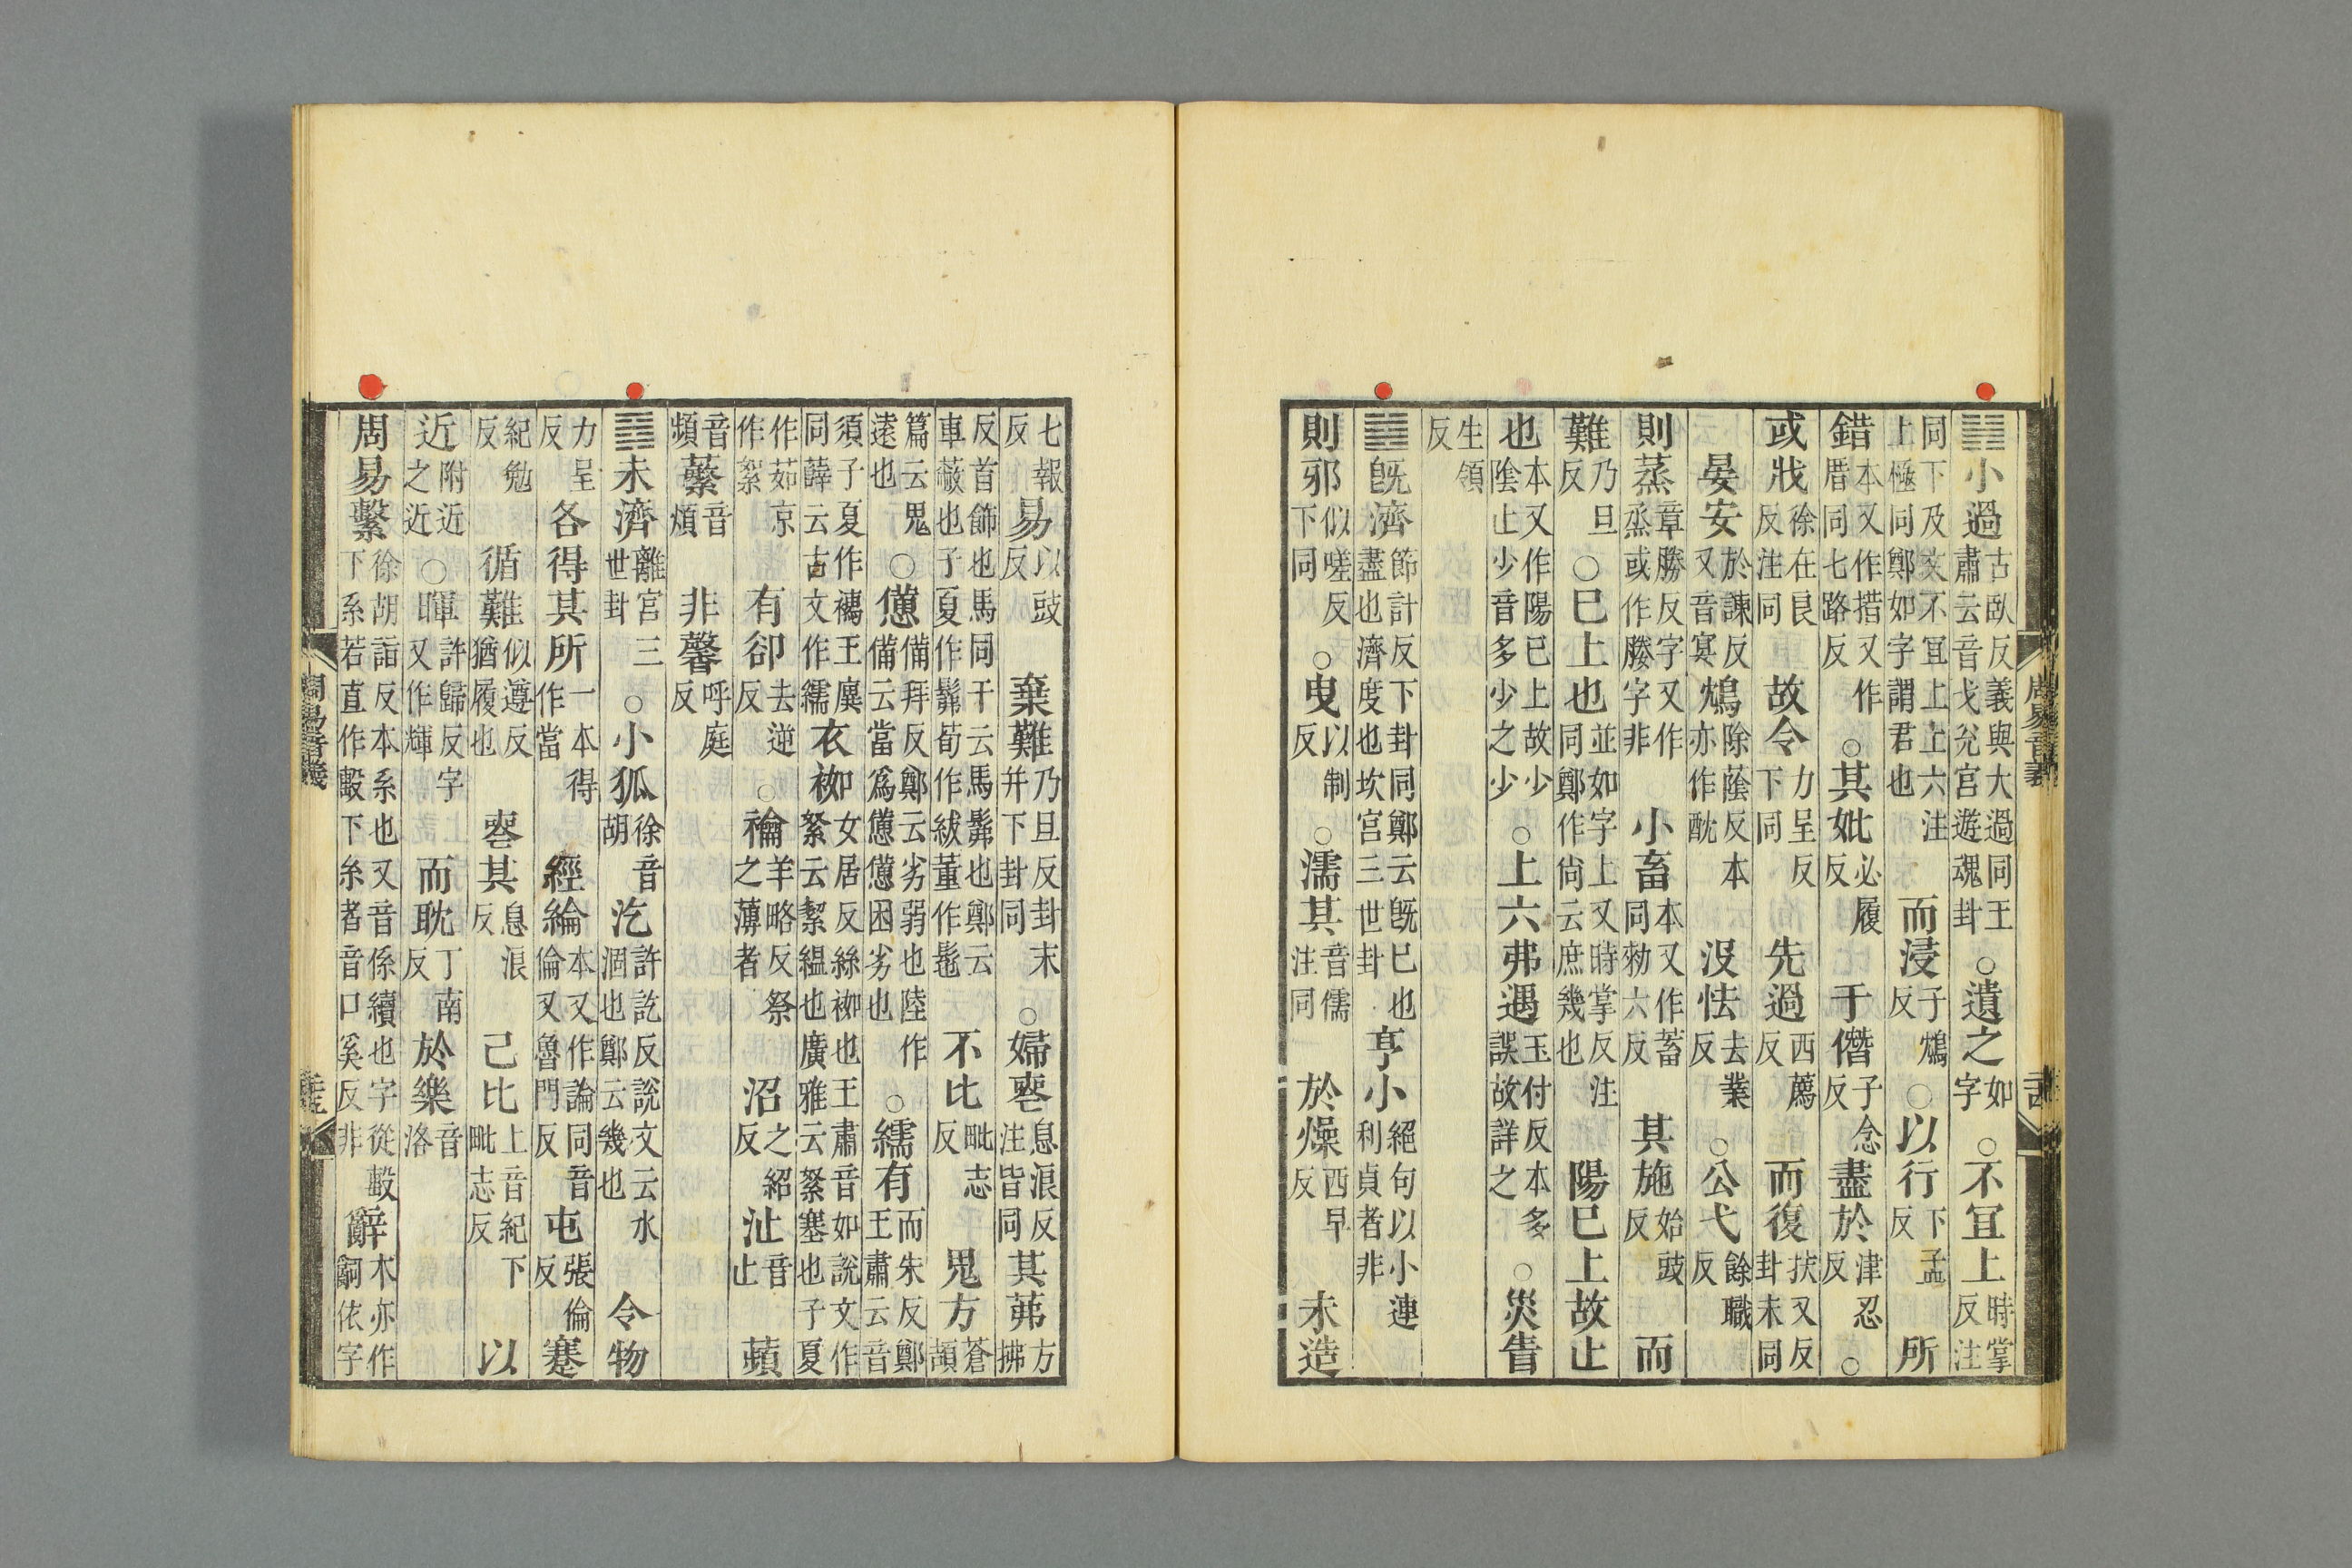 ䷽小過古臥反義與大過同王肅云音戈兌宮遊魂卦○遺之如字○不冝上時掌反注
同下及文不冝上上六注上極同鄭如字謂君也而浸子鴆反○以行下孟反所
錯本又作措又作厝同七路反○其妣必履反于僭子念反盡於津忍反○
或戕徐在良反注同故令力呈反下同先過西薦反而復扶又反卦末同
晏安於諫反又音寞鴆除蔭反本亦作酖沒怯去業反○公弋餘職反
則蒸章勝反字又作烝或作䅳字非小畜本又作蓄同勑六反其施始豉反而
難乃旦反○巳上也並如字上又時掌反注同鄭作尙云庶幾也陽巳上故止
也本又作陽巳上故少陰止少音多少之少○上六弗遇玉付反本多誤故詳之○災眚
生領反
䷾旣濟節計反下卦同鄭云旣巳也盡也濟度也坎宮三世卦亨小絕句以小連利貞者非
則邪似嗟反下同○曳以制反○濡其音儒注同於燥西早反未造
七報反易以豉反棄難乃旦反卦末并下卦同○婦喪息浪反注皆同其茀方拂
反首飾也馬同干云馬髴也鄭云車蔽也子夏作髴荀作紱董作髢不比毗志反鬼方蒼頡
篇云鬼遠也○憊備拜反鄭云劣弱也陸作備云當爲憊憊困劣也○繻有而朱反鄭王肅云音
須子夏作襦王廙同薛云古文作繻衣袽女居反絲袽也王肅音如說文作絮云絜縕也廣雅云絮塞也子夏
作茹京作絮有卻去逆反○禴羊略反祭之薄者沼之紹反沚音止蘋
音頻蘩音煩非馨呼庭反
䷿未濟離宮三世卦○小狐徐音胡汔許訖反說文云水涸也鄭云幾也令物
力呈反各得其所一本得作當經綸本又作論同音倫又魯門反屯張倫反蹇
紀勉反循難似遵反猶履也喪其息浪反己比上音紀下毗志反以
近附近之近○暉許歸反字又作輝而耽丁南反於樂音洛
周易繫徐胡詣反本系也又音係續也字從毄下系若直作毄下糸者音口奚反非辭本亦作嗣依字
周易音義
周易音義